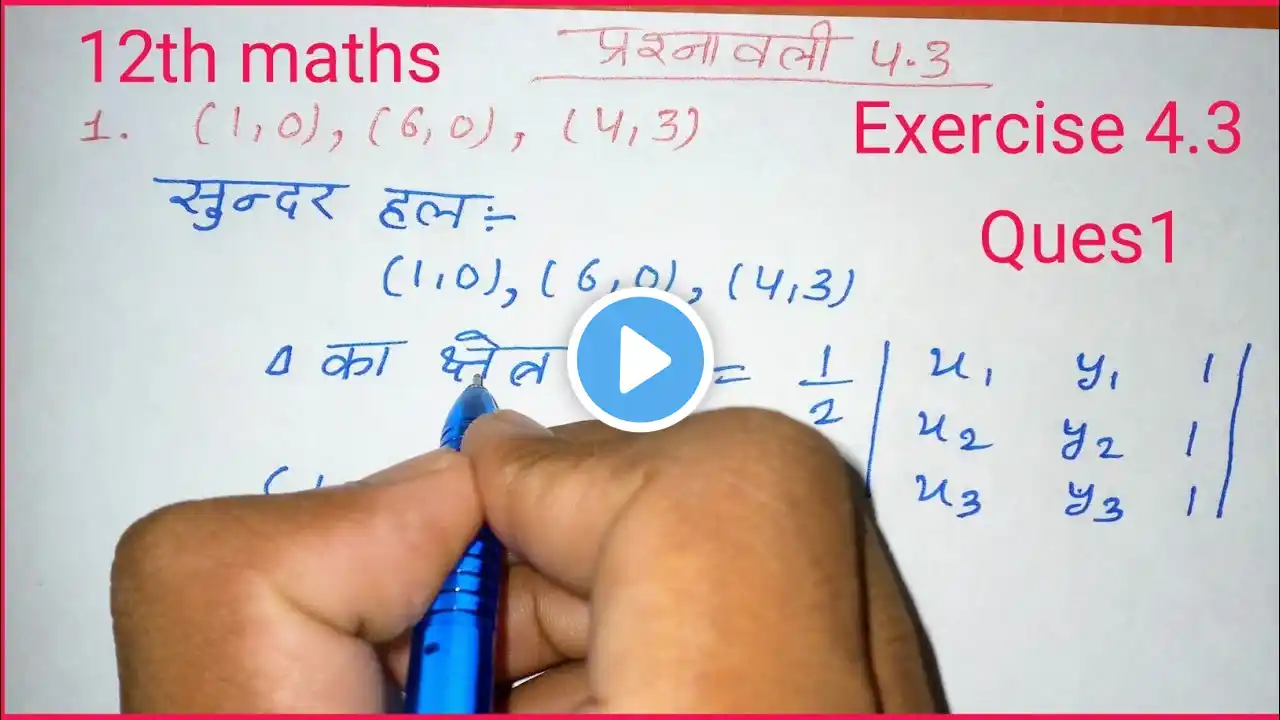 12th maths
प्रश्नावली 4.3
1. (1,0), (6,0), (4,3)
Exercise 4.3
सुन्दर हल:-
Ques1
(1,0), (6,0), (4,3)
Δ का = 1/2 | x₁ y₁ 1 |
| x₂ y₂ 1 |
| x₃ y₃ 1 |